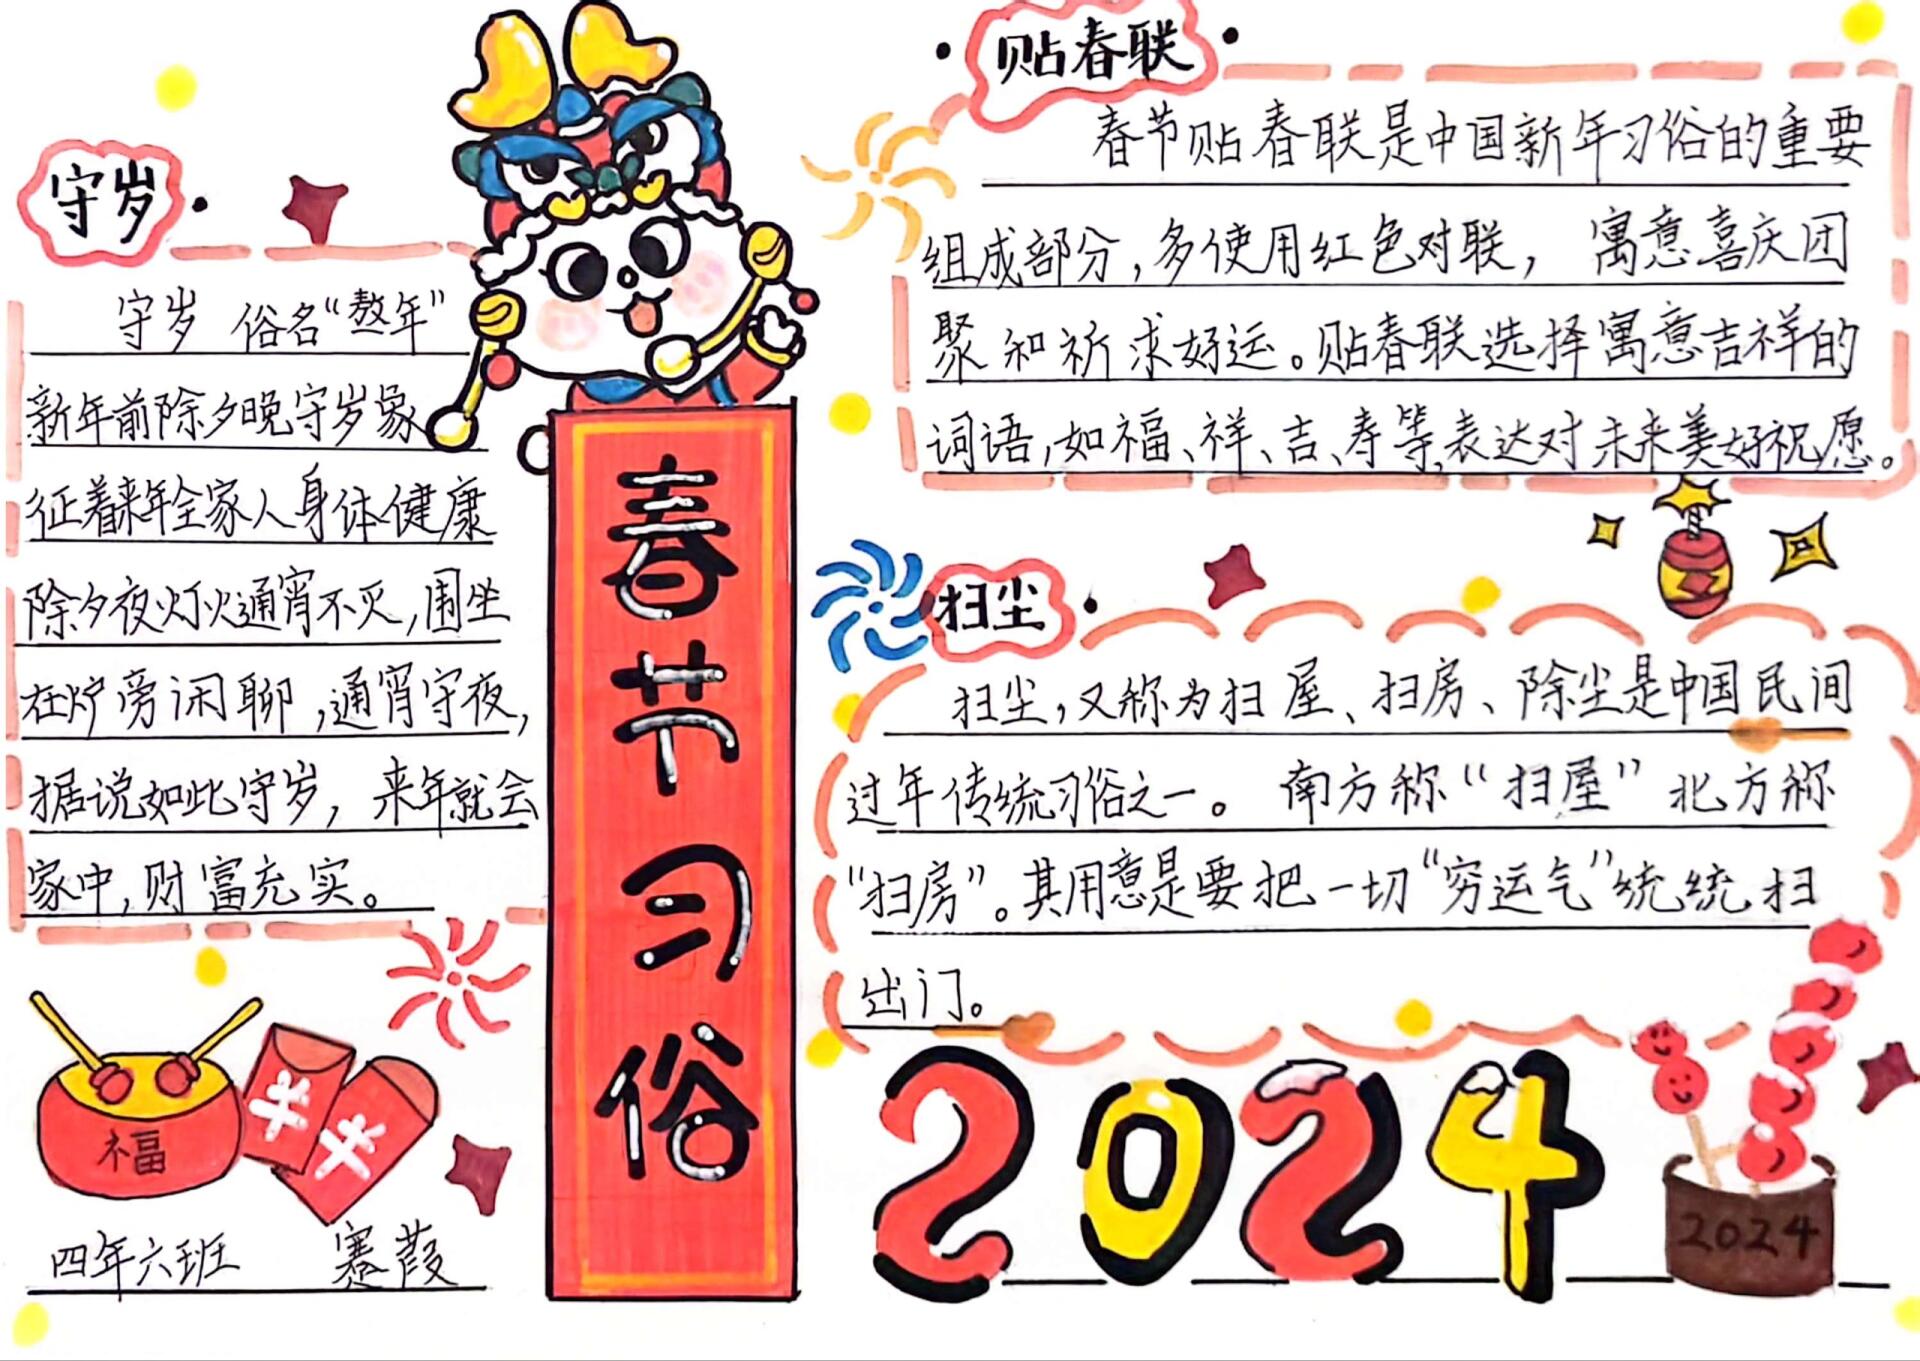 守岁
守岁 俗名“熬年”
新年前除夕晚守岁象
征着来年全家人身体健康
除夕夜灯火通宵不灭,围坐
在炉旁闲聊,通宵守夜,
据说如此守岁,来年就会
家中,财富充实。
福
四年六班 蹇葭
春节习俗
贴春联
春节贴春联是中国新年习俗的重要
组成部分,多使用红色对联,寓意喜庆团
聚和祈求好运。贴春联选择寓意吉祥的
词语,如福、祥、吉、寿等,表达对未来美好祝愿。
扫尘
扫尘,又称为扫屋、扫房、除尘是中国民间
过年传统习俗之一。南方称“扫屋”北方称
“扫房”。其用意是要把一切“穷运气”统统扫
出门。
2024
2024